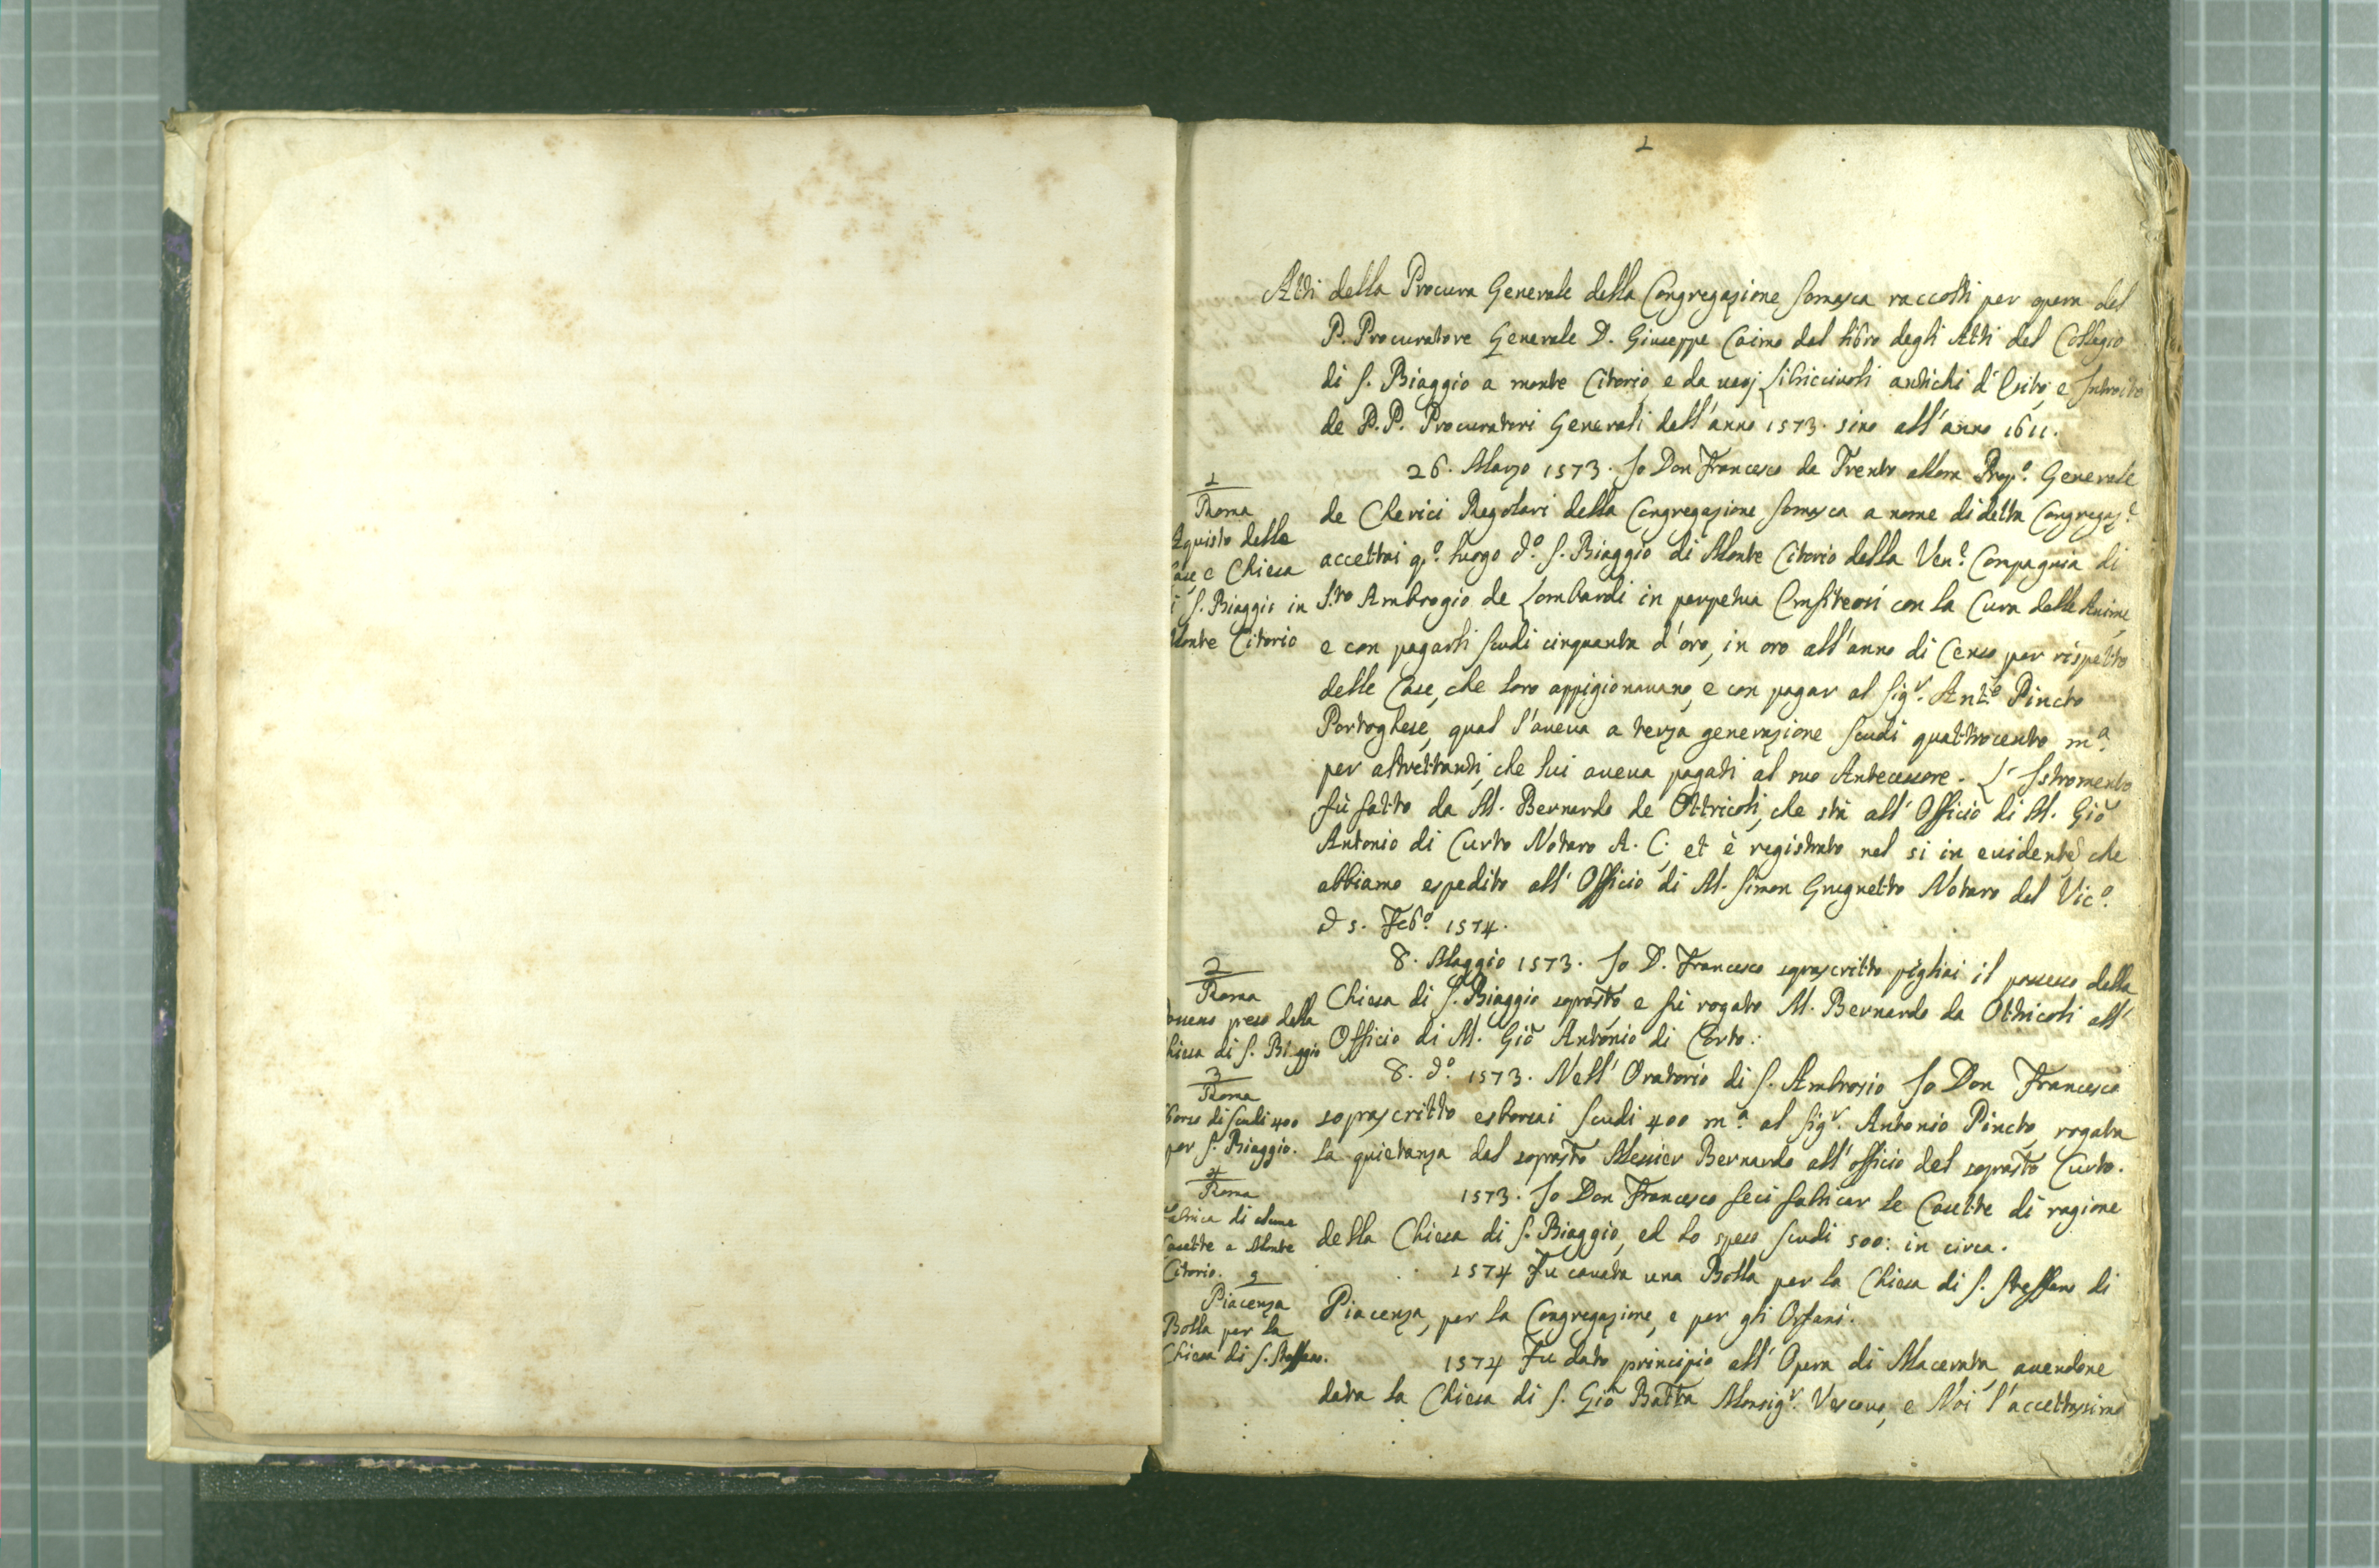 1
Atti della Procura Generale della Congregazione Somasca raccolti per opera del
P. Procuratore Generale D. Giuseppe Caimo dal libro degli Atti del Collegio
di S. Biaggio a monte Citorio, e da varj Libricciuoli antichi d'Esito, e Introito
de P.P. Procuratori Generali dall'anno 1573. sino all'anno 1611.
1
Roma
Aquisto delle
Case, e Chiesa
i S. Biaggio in
Monte Citorio
26. Marzo 1573. Io Don Francesco da Trento allora Prep.o Generale
de Chierici Regolari della Congregazione Somasca a nome di detta Congregaz.e
accettai q.o luogo d.o S. Biaggio di Monte Citorio dalla Ven.e Compagnia di
S.to Ambrogio de Lombardi in perpetua Emfiteosi con la Cura delle Anime,
e con pagarli scudi cinquanta d'oro, in oro all'anno di Censo per rispetto
delle Case, che loro appigionavano, e con pagar al Sig.r Ant.o Pincto
Portoghese, qual l'aveva a terza generazione scudi quattrocento m.a
per altrettanti, che lui aveva pagati al suo Antecessore. L'Istromento
fù fatto da M. Bernardo de Ottricoli, che stà all'Officio di M. Gio
Antonio di Curto Notaro A. C. et è registrato nel si in evidente che
abbiamo espedito all'Officio di M. Simon Grugnetto Notaro del Vic.o
d 5. Feb.o 1574.
2
Roma
Possesso preso della
hiesa di S. Biaggio
8. Maggio 1573. Io D. Francesco soprascritto pigliai il possesso della
Chiesa di S. Biaggio soprasto, e fù rogato M. Bernardo da Othricoli all'
Officio di M. Gio Antonio di Corto.
3
Roma
Sborso di scudi 400
per S. Biaggio.
8. d.o 1573. Nell'Oratorio di S. Ambrosio Io Don Francesco
soprascritto esborsai scudi 400 m.a al Sig.r Antonio Pincto, rogata
la quietanza dal soprasto Messier Bernardo all'officio del soprasto Curto.
4
Roma
Fabrica di alcune
Casette a Monte
Citorio.
1573. Io Don Francesco feci fabricar le Casette di ragione
della Chiesa di S. Biaggio, ed ho speso scudi 500: in circa.
5
Piacenza
Bolla per la
Chiesa di S. Steffano.
1574 Fu cavata una Bolla per la Chiesa di S. Steffano di
Piacenza, per la Congregazione, e per gli Orfani.
1574 Fu dato principio all'Opera di Macerata, avendone
data la Chiesa di S. Gio Batta Monsig.r Vescovo, e Noi l'accettassimo